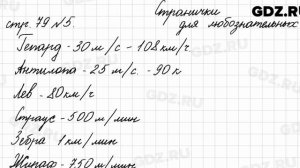 Странички
GDZ.RU
стр. 79 №5. для любознательных
Гепард - 30 м/с - 108 км/ч
Антилопа - 25 м/с. - 90 к
Лев - 80 км/ч
Страус - 500 м/мин
Зебра 1 км/мин
Жираф - 750 м/мин
GDZ.RU